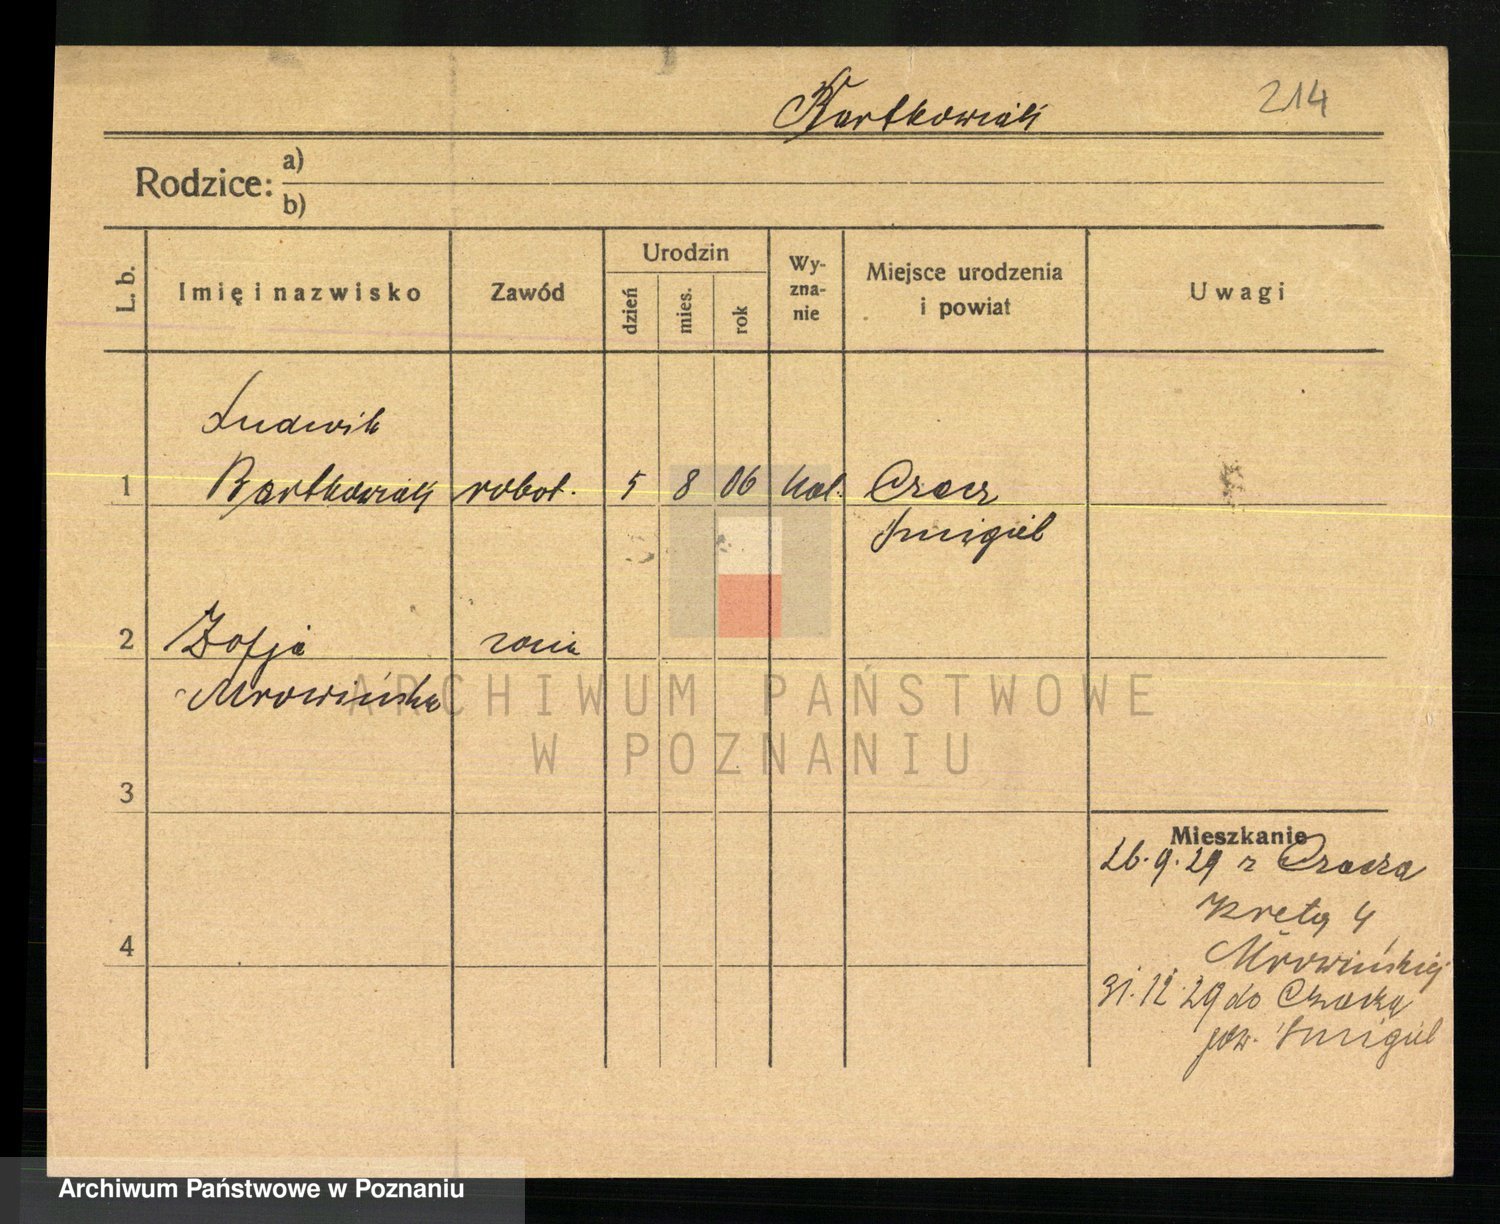 Bartkowiak
214
Rodzice: a)
b)
L. b.
Imię i nazwisko
Zawód
Urodzin
dzień
mies.
rok
Wy-
zna-
nie
Miejsce urodzenia
i powiat
Uwagi
Ludwik
1 Bartkowiak robot. 5 8 06 kat. Czacz
Śmigiel
2 Zofja żona
Mrowińska
3
4
Mieszkanie
26.9.29 z Czacza
Kręta 4
Mrowińskiej
31.12.29 do Czacza
pow. Śmigiel
ARCHIWUM PAŃSTWOWE
W POZNANIU
Archiwum Państwowe w Poznaniu